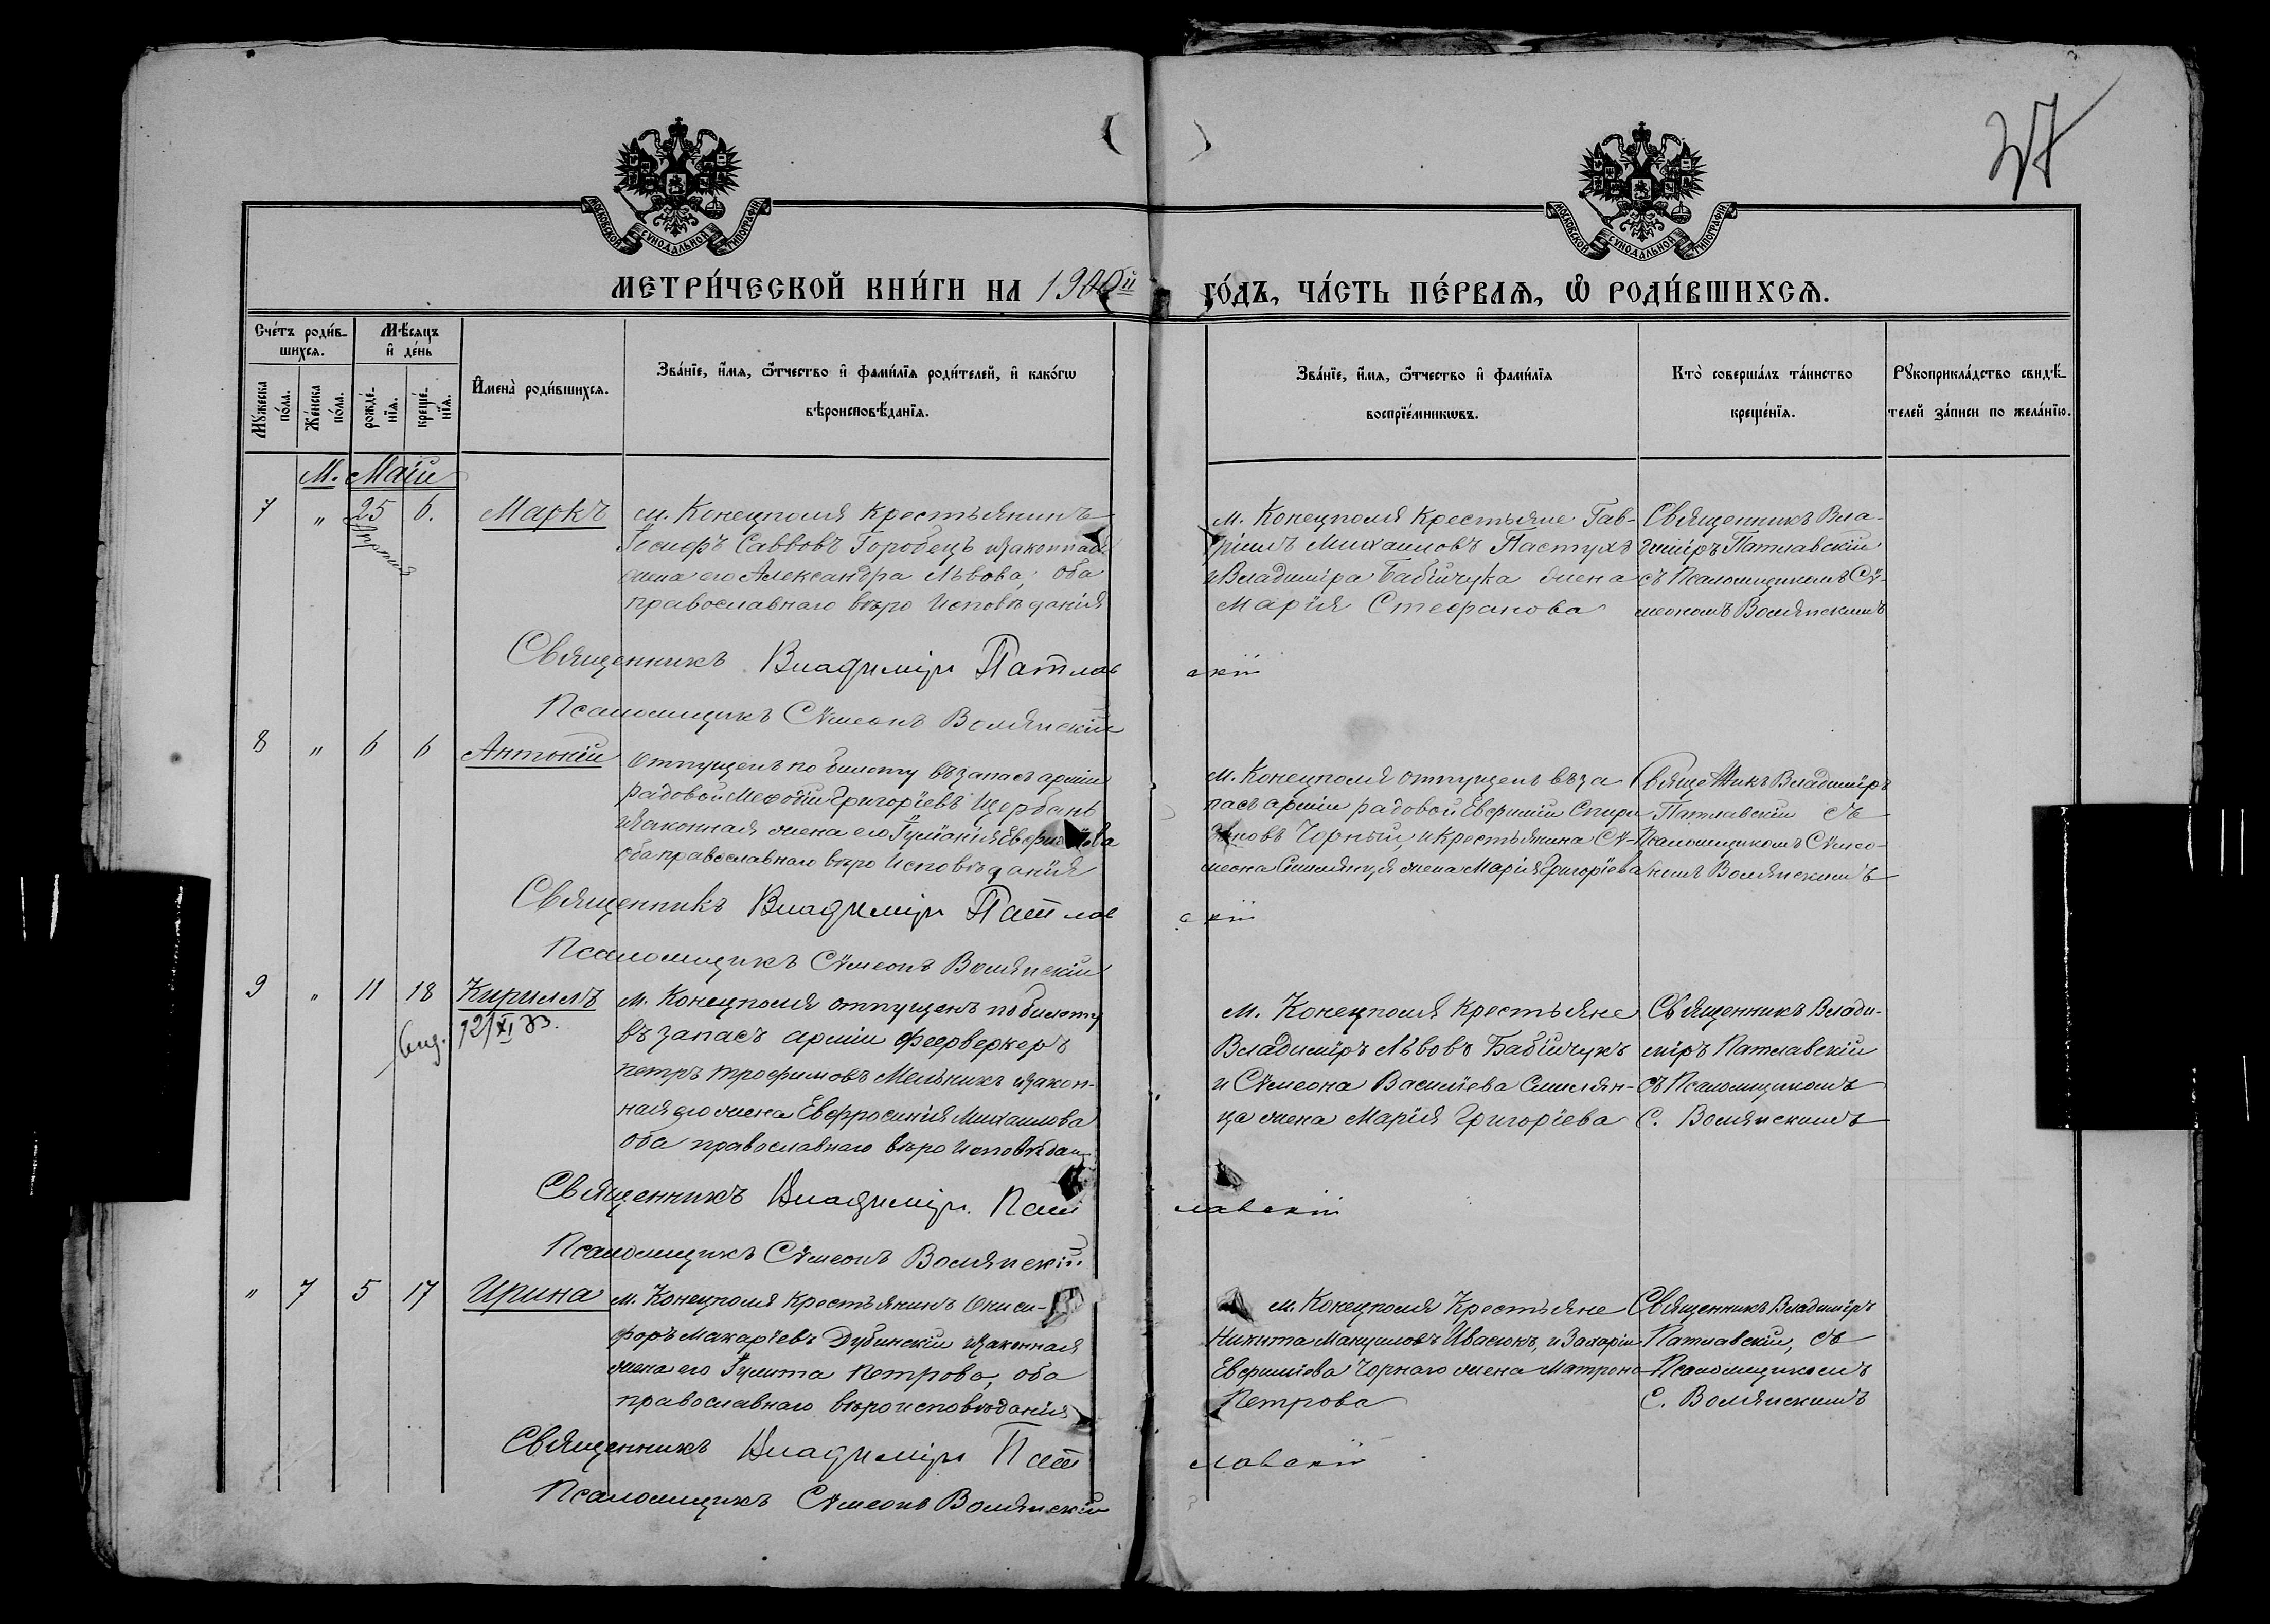 37
МОСКОВСКОЙ СУНОДАЛЬНОЙ ТИПОГРАФІИ
МОСКОВСКОЙ СУНОДАЛЬНОЙ ТИПОГРАФІИ
МЕТРИ́ЧЕСКОЙ КНИ́ГИ НА 1900й ГО́ДЪ, ЧА́СТЬ ПЕ́РВАѦ, Ѽ РОДИ́ВШИХСѦ.
Сче́тъ роди́в-
шихсѧ.
Мѣ́сяцъ
и҆ де́нь
Мꙋ́жеска
по́ла.
Же́нска
по́ла.
рожде́-
нїѧ.
креще́-
нїѧ.
И҆мена̀ роди́вшихсѧ.
Зва́нїе, и҆́мѧ, ѻ҆́тчество и҆ фами́лїѧ роди́телей, и҆ како́гѡ
вѣроисповѣ́данїѧ.
Зва́нїе, и҆́мѧ, ѻ҆́тчество и҆ фами́лїѧ
воспрїе́мникѡвъ.
Кто̀ соверша́лъ та́инство
креще́нїѧ.
Рꙋкоприкла́дство свидѣ́-
телей за́писи по жела́нїю.
М. Маій
7 " 25 6. Маркъ
Апрѣля
м. Конецполя крестьянинъ
Іосифъ Саввовъ Горобецъ и законная
жена его Александра Львова, оба
православнаго вѣро исповѣданія
м. Конецполя крестьяне Гав-
ріилъ Михаиловъ Пастухъ
и Владиміра Бабійчука жена
Марія Стефанова
Священникъ Вла-
диміръ Патлавскій
съ Псаломщикомъ Сѵ-
меономъ Волянскимъ
Священникъ Владиміръ Патлавскій
Псаломщикъ Сѵмеонъ Волянскій
8 " 6 6 Антоній
Отпущенъ по билету въ запасъ арміи
рядовой Меѳодій Григоріевъ Щербань
и законная жена его Іуліанія Евфиміева
оба православнаго вѣро исповѣданія
м. Конецполя отпущенъ въ за
пасъ арміи рядовой Евфимій Спири
доновъ Чорный и крестьянина Сѵ-
меона Смилянця жена Марія Григоріева
Священникъ Владиміръ
Патлавскій съ
Псаломщикомъ Сѵмео-
номъ Волянскимъ
Священникъ Владиміръ Патлавскій
Псаломщикъ Сѵмеонъ Волянскій
9 " 11 18 Кириллъ
12/XI 33.
м. Конецполя отпущенъ по билету
въ запасъ арміи феерверкеръ
петръ трофимовъ Мельникъ и закон-
ная его жена Евфросинія Михаилова
оба православнаго вѣро исповѣдан
м. Конецполя крестьяне
Владиміръ Львовъ Бабійчукъ
и Сѵмеона Василіева Смилян-
ца жена Марія Григоріева
Священникъ Влади-
міръ Патлавскій
съ Псаломщикомъ
С. Волянскимъ
Священникъ Владиміръ Патлавскій
Псаломщикъ Сѵмеонъ Волянскій
" 7 5 17 Ирина
м. Конецполя Крестьянинъ Ониси-
форъ Макаріевъ Дубинскій и законная
жена его Іулита Петрова, оба
православнаго вѣроисповѣданія
м. Конецполя Крестьяне
Никита Мануиловъ Ивасюкъ, и Захаріи
Евфиміева Чорнаго жена Матрона
Петрова
Священникъ Владиміръ
Патлавскій, съ
Псаломщикомъ
С. Волянскимъ
Священникъ Владиміръ Патлавскій
Псаломщикъ Сѵмеонъ Волянскій